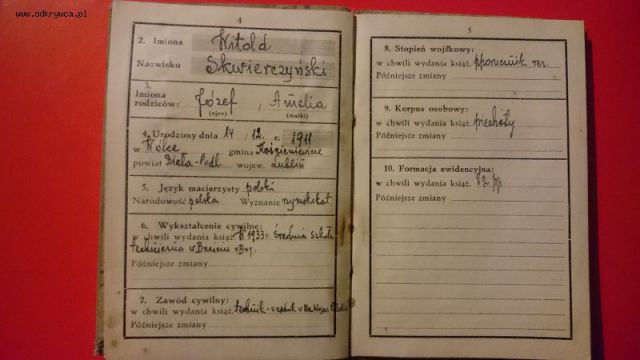 www.odkrywca.pl
4
2. Imiona Witold
Nazwisko Skwierczyński
3.
Imiona
rodziców: Józef, Amelia
(ojca) (matki)
4. Urodzony dnia 14 12. r. 1911
w Wólce gmina Kościeniewicze
powiat Biała-Podl. wojew. Lublin
5. Język macierzysty polski
Narodowość polska Wyznanie rzymskokat.
6. Wykształcenie cywilne:
w chwili wydania książ. W 1933 r. Średnia szkoła
techniczna w Brześciu n/Bug.
Późniejsze zmiany
7. Zawód cywilny:
w chwili wydania książ. technik
Późniejsze zmiany
5
8. Stopień wojskowy:
w chwili wydania książ. pporucznik rez.
Późniejsze zmiany
9. Korpus osobowy:
w chwili wydania książ. piechoty
Późniejsze zmiany
10. Formacja ewidencyjna:
w chwili wydania książ. 82 pp
Późniejsze zmiany